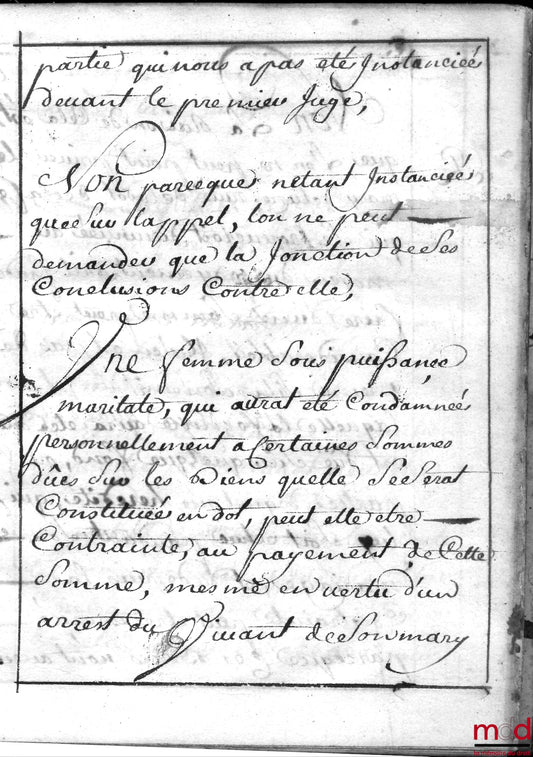 partie qui nous a pas eté Instanciéé
devant le premier Juge,
Non parceque netant Instanciéé
que sur lappel, lon ne peut
demander que la Jonction de ses
Conclusions Contre elle,
Une femme sous puissance
maritale, qui aurat eté Condamnéé
personnellement a Certaines sommes
dûes sur les Biens quelle se serat
Constituéé en dot, peut elle etre
Contrainte, au payement de Cette
somme, mesme en vertu d'un
arrest du Vivant de son mary
mod